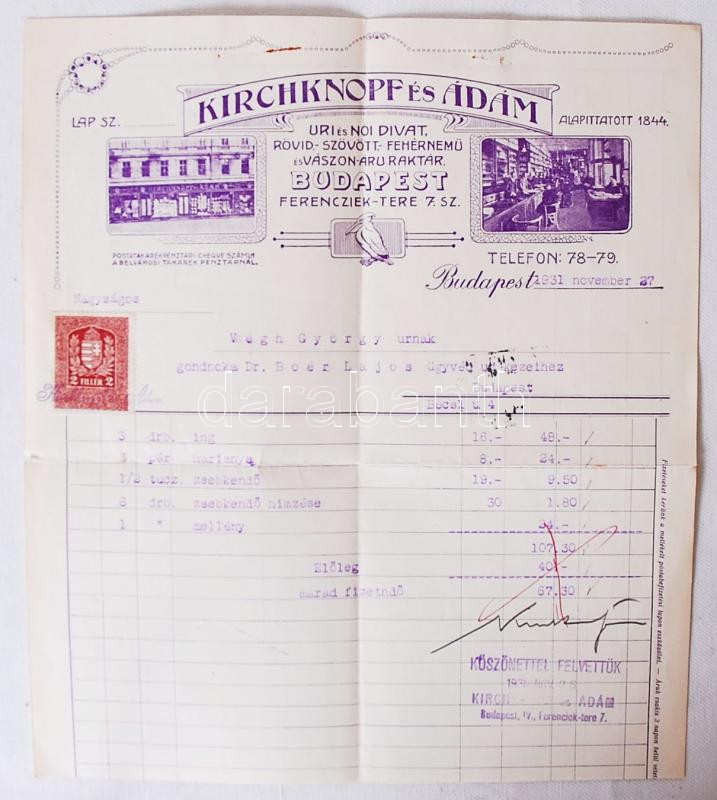 KIRCHKNOPF ÉS ÁDÁM
LAP SZ.
ALAPITTATOTT 1844.
URI ÉS NŐI DIVAT,
RÖVID- SZÖVÖTT- FEHÉRNEMŰ
ÉS VÁSZON-ÁRU RAKTÁR.
BUDAPEST
FERENCZIEK-TERE 7. SZ.
KIRCHKNOPF ÉS ÁDÁM
POSTATAKARÉKPÉNZTÁRI CHEQUE SZÁMLA
A BELVÁROSI TAKARÉK PÉNZTÁRNÁL.
TELEFON: 78-79.
Budapest 1931 november 27
Nagyságos
Végh György urnak
gondnoka Dr. Boér Lajos ügyvéd ur kezeihez
Budapest
Bécsi u 4
2 FILLÉR 2
darabanth
3 drb. ing 16.- 48.-
3 pár harisnya 8.- 24.-
1/2 tucz. zsebkendő 19.- 9.50
6 drb. zsebkendő himzése 30 1.80
1 " mellény 24.-
107.30
Előleg 40.-
marad fizetndő 67.30
KÖSZÖNETTEL FELVETTÜK
KIRCH ÁDÁM
Budapest, IV., Ferenciek-tere 7.
Fizetéseket kérünk a mellékelt póstabefizetési lapon eszközölni. — Áruk csakis 3 napon belül